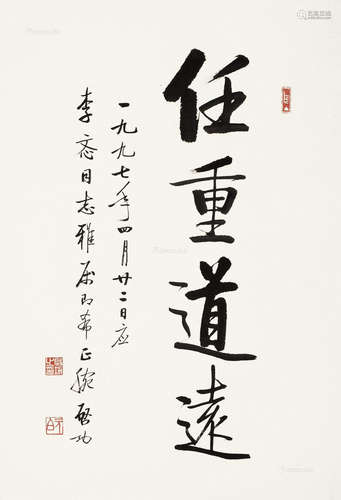 任重道遠
一九九七年四月廿二日应
李斋同志雅属即希正腕启功